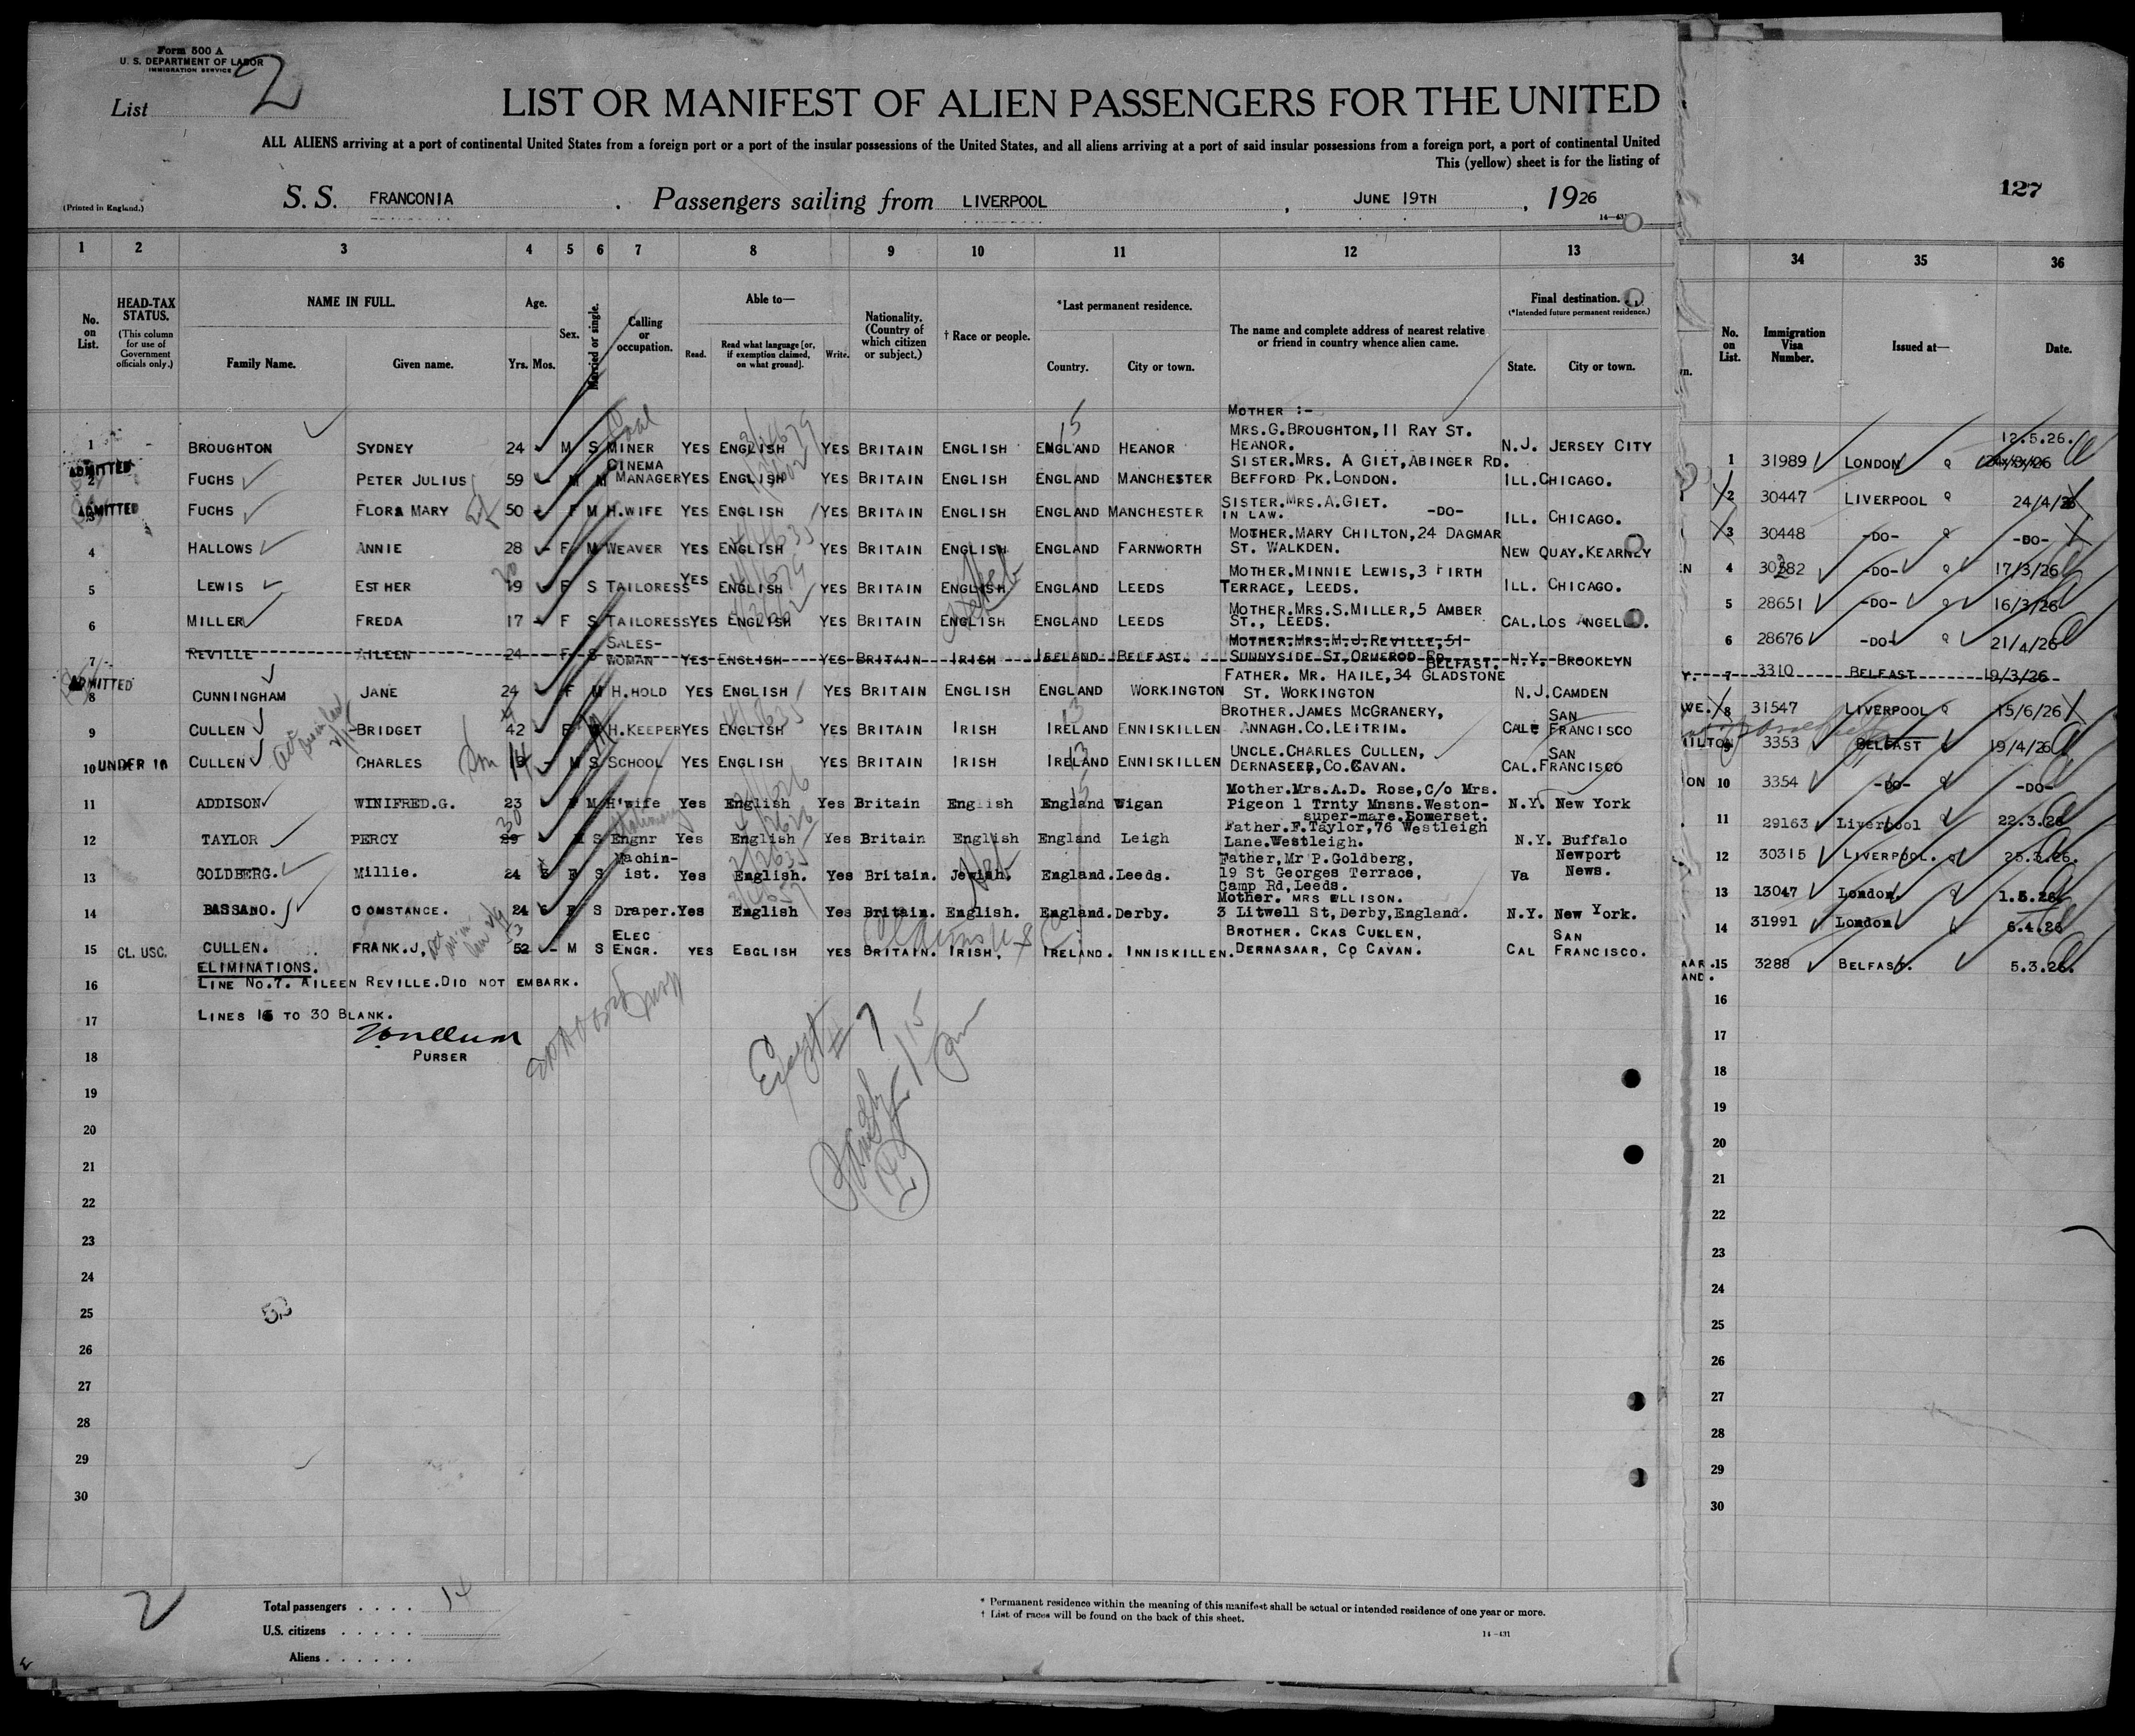 Form 500 A
U. S. DEPARTMENT OF LABOR
IMMIGRATION SERVICE
List 2
LIST OR MANIFEST OF ALIEN PASSENGERS FOR THE UNITED
ALL ALIENS arriving at a port of continental United States from a foreign port or a port of the insular possessions of the United States, and all aliens arriving at a port of said insular possessions from a foreign port, a port of continental United
This (yellow) sheet is for the listing of
127
(Printed in England.)
S. S. FRANCONIA . Passengers sailing from LIVERPOOL , JUNE 19TH , 1926
1 2 3 4 5 6 7 8 9 10 11 12 13 34 35 36
No. on List.
HEAD-TAX STATUS.
(This column for use of Government officials only.)
NAME IN FULL.
Family Name. Given name.
Age.
Yrs. Mos.
Sex.
Married or single.
Calling or occupation.
Able to—
Read. Read what language [or, if exemption claimed, on what ground]. Write.
Nationality. (Country of which citizen or subject.)
† Race or people.
*Last permanent residence.
Country. City or town.
The name and complete address of nearest relative or friend in country whence alien came.
Final destination.
(*Intended future permanent residence.)
State. City or town.
No. on List.
Immigration Visa Number.
Issued at—
Date.
1 BROUGHTON SYDNEY 24 M S Coal MINER YES ENGLISH YES BRITAIN ENGLISH ENGLAND HEANOR MOTHER :- MRS.G.BROUGHTON,11 RAY ST. HEANOR. N.J. JERSEY CITY 1 31989 LONDON 12.5.26.
ADMITTED 2 FUCHS PETER JULIUS 59 M M CINEMA MANAGER YES ENGLISH YES BRITAIN ENGLISH ENGLAND MANCHESTER SISTER.MRS. A GIET,ABINGER RD. BEFFORD PK.LONDON. ILL.CHICAGO. 2 30447 LIVERPOOL 24/4/26
ADMITTED 3 FUCHS FLORA MARY 50 F M H.WIFE YES ENGLISH YES BRITAIN ENGLISH ENGLAND MANCHESTER SISTER.MRS.A.GIET. IN LAW. -DO- ILL. CHICAGO. 3 30448 -DO- -DO-
4 HALLOWS ANNIE 28 F M WEAVER YES ENGLISH YES BRITAIN ENGLISH ENGLAND FARNWORTH MOTHER.MARY CHILTON,24 DAGMAR ST. WALKDEN. NEW QUAY.KEARNEY 4 30382 -DO- 17/3/26
5 LEWIS ESTHER 19 F S TAILORESS YES ENGLISH YES BRITAIN ENGLISH ENGLAND LEEDS MOTHER.MINNIE LEWIS,3 FIRTH TERRACE, LEEDS. ILL. CHICAGO. 5 28651 -DO- 16/3/26
6 MILLER FREDA 17 F S TAILORESS YES ENGLISH YES BRITAIN ENGLISH ENGLAND LEEDS MOTHER.MRS.S.MILLER,5 AMBER ST., LEEDS. CAL.LOS ANGEL 6 28676 -DO- 21/4/26
7 REVILLE AILEEN 24 F S SALES-WOMAN YES ENGLISH YES BRITAIN IRISH IRELAND BELFAST. MOTHER.MRS.M.J.REVILLE,51 SUNNYSIDE ST.ORMEROD RD BELFAST. N.Y. BROOKLYN 7 3310 BELFAST 19/3/26
ADMITTED 8 CUNNINGHAM JANE 24 F M H.HOLD YES ENGLISH YES BRITAIN ENGLISH ENGLAND WORKINGTON FATHER. MR. HAILE,34 GLADSTONE ST. WORKINGTON N.J.CAMDEN 8 31547 LIVERPOOL 15/6/26
9 CULLEN BRIDGET 42 F H.KEEPER YES ENGLISH YES BRITAIN IRISH IRELAND ENNISKILLEN BROTHER.JAMES MCGRANERY, ANNAGH.CO.LEITRIM. CAL SAN FRANCISCO 9 3353 BELFAST 19/4/26
10 UNDER 16 CULLEN CHARLES 14 M S SCHOOL YES ENGLISH YES BRITAIN IRISH IRELAND ENNISKILLEN UNCLE.CHARLES CULLEN, DERNASEER,CO.CAVAN. CAL. SAN FRANCISCO 10 3354 -DO- -DO-
11 ADDISON WINIFRED.G. 23 F M H'wife Yes English Yes Britain English England Wigan Mother.Mrs.A.D. Rose,C/o Mrs. Pigeon 1 Trnty Mnsns.Weston-super-mare.Somerset. N.Y. New York 11 29163 Liverpool 22.3.26
12 TAYLOR PERCY 29 30 M S Engnr Yes English Yes Britain English England Leigh Father.F.Taylor,76 Westleigh Lane.Westleigh. N.Y. Buffalo 12 30315 LIVERPOOL. 25.3.26.
13 GOLDBERG. Millie. 24 F S Machin-ist. Yes English. Yes Britain. Jewish. England. Leeds. Father,Mr P.Goldberg, 19 St Georges Terrace, Camp Rd,Leeds. Va Newport News. 13 13047 London. 1.5.26
14 BASSANO. CONSTANCE. 24 F S Draper. Yes English Yes Britain. English. England. Derby. Mother. MRS ELLISON. 3 Litwell St,Derby,England. N.Y. New York. 14 31991 London 6.4.26
15 CL. USC. CULLEN. FRANK.J, 52 M S ELEC ENGR. YES EBGLISH YES BRITAIN. IRISH. IRELAND. INNISKILLEN. BROTHER. CKAS CULLEN, DERNASAAR, CO CAVAN. CAL SAN FRANCISCO. 15 3288 BELFAST. 5.3.26.
ELIMINATIONS.
16 LINE NO.7. AILEEN REVILLE.DID NOT EMBARK. 16
17 LINES 16 TO 30 BLANK. 17
18 PURSER 18
19 19
20 20
21 21
22 22
23 23
24 24
25 25
26 26
27 27
28 28
29 29
30 30
Except # 7
2
Total passengers . . . . 14
U.S. citizens . . . . .
Aliens . . . . . .
* Permanent residence within the meaning of this manifest shall be actual or intended residence of one year or more.
† List of races will be found on the back of this sheet.
14—431